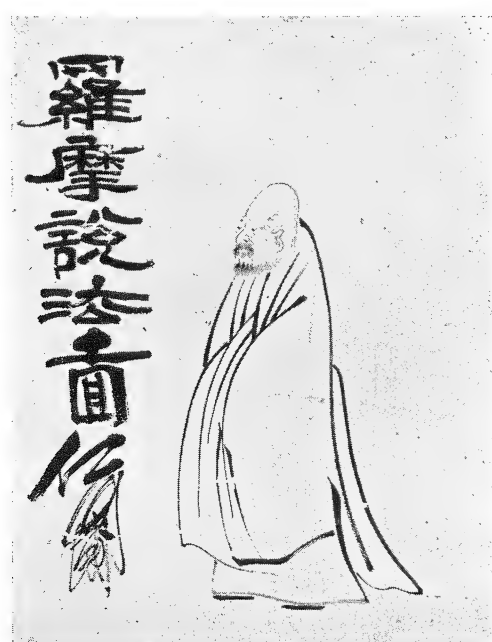 羅摩說法圖